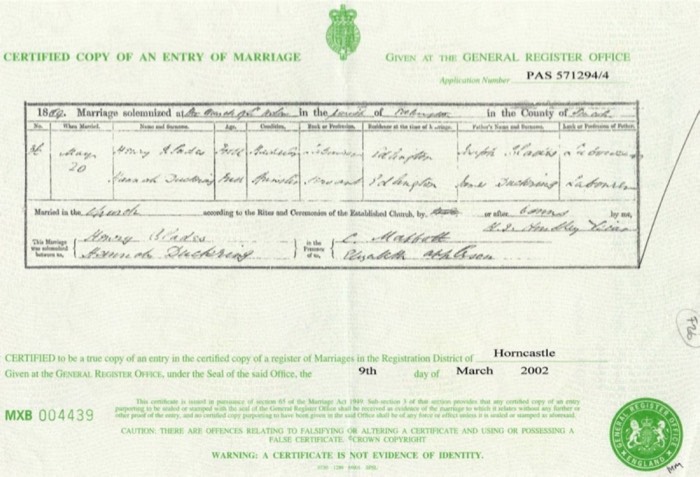 CERTIFIED COPY OF AN ENTRY OF MARRIAGE
GIVEN AT THE GENERAL REGISTER OFFICE
Application Number PAS 571294/4
Marriage solemnized at in the of in the County of
No. When Married. Name and Surname. Age. Condition. Rank or Profession. Residence at the time of Marriage. Father's Name and Surname. Rank or Profession of Father.
May Henry Blades Full Bachelor Labourer Edlington Joseph Blades Labourer
20 Hannah Duckering Full Spinster Servant Edlington Duckering Labourer
Married in the Church according to the Rites and Ceremonies of the Established Church, by or after Banns by me,
Vicar
This Marriage was solemnized between us, Henry Blades in the Presence of us, C. Mabbott
Hannah Duckering Elizabeth
Feb
CERTIFIED to be a true copy of an entry in the certified copy of a register of Marriages in the Registration District of Horncastle
Given at the GENERAL REGISTER OFFICE, under the Seal of the said Office, the 9th day of March 2002
MXB 004439
This certificate is issued in pursuance of section 65 of the Marriage Act 1949. Sub-section 3 of that section provides that any certified copy of an entry
purporting to be sealed or stamped with the seal of the General Register Office shall be received as evidence of the marriage to which it relates without any further or
other proof of the entry, and no certified copy purporting to have been given in the said Office shall be of any force or effect unless it is sealed or stamped as aforesaid.
CAUTION: THERE ARE OFFENCES RELATING TO FALSIFYING OR ALTERING A CERTIFICATE AND USING OR POSSESSING A
FALSE CERTIFICATE. ©CROWN COPYRIGHT
WARNING: A CERTIFICATE IS NOT EVIDENCE OF IDENTITY.
GENERAL REGISTER OFFICE
ENGLAND